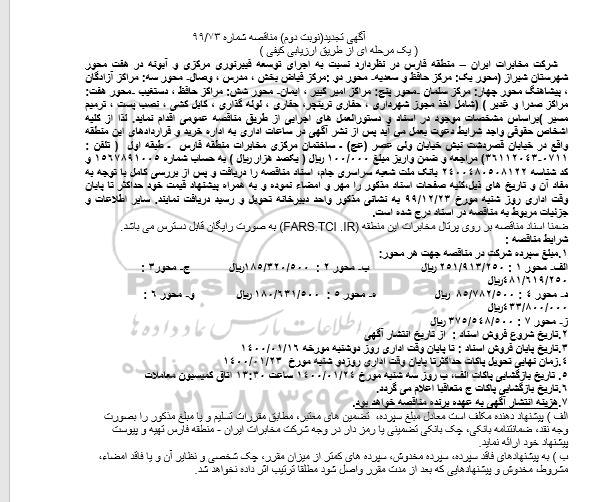 آگهی تجدید(نوبت دوم) مناقصه شماره ۹۹/۷۳
( یک مرحله ای از طریق ارزیابی کیفی )
شرکت مخابرات ایران – منطقه فارس در نظردارد نسبت به اجرای توسعه فیبرنوری مرکزی و آبونه در هفت محور
شهرستان شیراز (محور یک: مرکز حافظ و سعدیه- محور دو :مرکز فیاض بخش ، مدرس ، وصال- محور سه: مراکز آزادگان
، پیشاهنگ محور چهار: مرکز سلمان -محور پنج: مراکز امیر کبیر ، ایمان- محور شش: مراکز حافظ ، دستغیب -محور هفت:
مراکز صدرا و غدیر ) (شامل اخذ مجوز شهرداری ، حفاری ترینچر، حفاری ، لوله گذاری ، کابل کشی ، نصب پست ، ترمیم
مسیر )براساس مشخصات موجود در اسناد و دستورالعمل های اجرایی از طریق مناقصه عمومی اقدام نماید. لذا از کلیه
اشخاص حقوقی واجد شرایط دعوت بعمل می آید پس از نشر آگهی در ساعات اداری به اداره خرید و قراردادهای این منطقه
واقع در خیابان قصردشت نبش خیابان ولی عصر (عج) - ساختمان مرکزی مخابرات منطقه فارس - طبقه اول ( تلفن :
۰۷۱۱-۳۶۱۱۲۰۴۳) مراجعه و ضمن واریز مبلغ ۱۰۰/۰۰۰ ریال ( یکصد هزار ریال ) به حساب شماره ۱۵۶۷۸۹۱۰۰۵ و
کد شناسه ۲۴۰۰۰۴۸۰۵۰۸۱۲۲ بانک ملت شعبه سراسری جام، اسناد مناقصه را دریافت و پس از بررسی کامل با توجه به
مفاد آن و تاریخ های ذیل،کلیه صفحات اسناد مذکور را مهر و امضاء نموده و به همراه پیشنهاد قیمت خود حداکثر تا پایان
وقت اداری روز شنبه مورخ ۹۹/۱۲/۲۳ به نشانی مذکور واحد دبیرخانه تحویل و رسید دریافت نمایند. سایر اطلاعات و
جزئیات مربوط به مناقصه در اسناد درج شده است.
ضمنا اسناد مناقصه بر روی پرتال مخابرات این منطقه (FARS.TCI .IR) به صورت رایگان قابل دسترس می باشد.
شرایط مناقصه :
۱.مبلغ سپرده شرکت در مناقصه جهت هر محور:
الف- محور ۱ : ۲۵۱/۹۱۳/۲۵۰ ریال ب- محور ۲ : ۱۸۵/۳۲۰/۵۰۰ریال ج- محور۳ :
۴۸۱/۶۱۹/۲۵۰ریال
د- محور ۴ : ۸۵/۷۸۲/۵۰۰ ریال ه- محور ۵ : ۱۸۰/۶۳۱/۵۰۰ریال و- محور ۶ :
۴۳۳/۸۰۰/۰۰۰ریال
ز- محور ۷ : ۳۷۵/۵۴۸/۵۰۰ ریال
۲.تاریخ شروع فروش اسناد : از تاریخ انتشار آگهی
۳.تاریخ پایان فروش اسناد : تا پایان وقت اداری روز دوشنبه مورخه ۱۴۰۰/۰۱/۱۶
۴.زمان نهایی تحویل پاکات حداکثرتا پایان وقت اداری روزدو شنبه مورخ ۱۴۰۰/۰۱/۲۳
۵. تاریخ بازگشایی پاکات الف، ب روز سه شنبه مورخ ۱۴۰۰/۰۱/۲۴ ساعت ۱۳:۳۰ اتاق کمیسیون معاملات
۶.تاریخ بازگشایی پاکات ج متعاقبا اعلام می گردد.
۷.هزینه انتشار آگهی به عهده برنده مناقصه خواهد بود.
الف ) پیشنهاد دهنده مکلف است معادل مبلغ سپرده، تضمین های معتبر، مطابق مقررات تسلیم و یا مبلغ مذکور را بصورت
وجه نقد، ضمانتنامه بانکی، چک بانکی تضمینی یا رمز دار در وجه شرکت مخابرات ایران - منطقه فارس تهیه و پیوست
پیشنهاد خود ارائه نماید.
ب ) به پیشنهادهای فاقد سپرده، سپرده مخدوش، سپرده های کمتر از میزان مقرر، چک شخصی و نظایر آن و یا فاقد امضاء،
مشروط، مخدوش و پیشنهادهایی که بعد از مدت مقرر واصل شود مطلقا ترتیب اثر داده نخواهد شد.
ParsNamadData